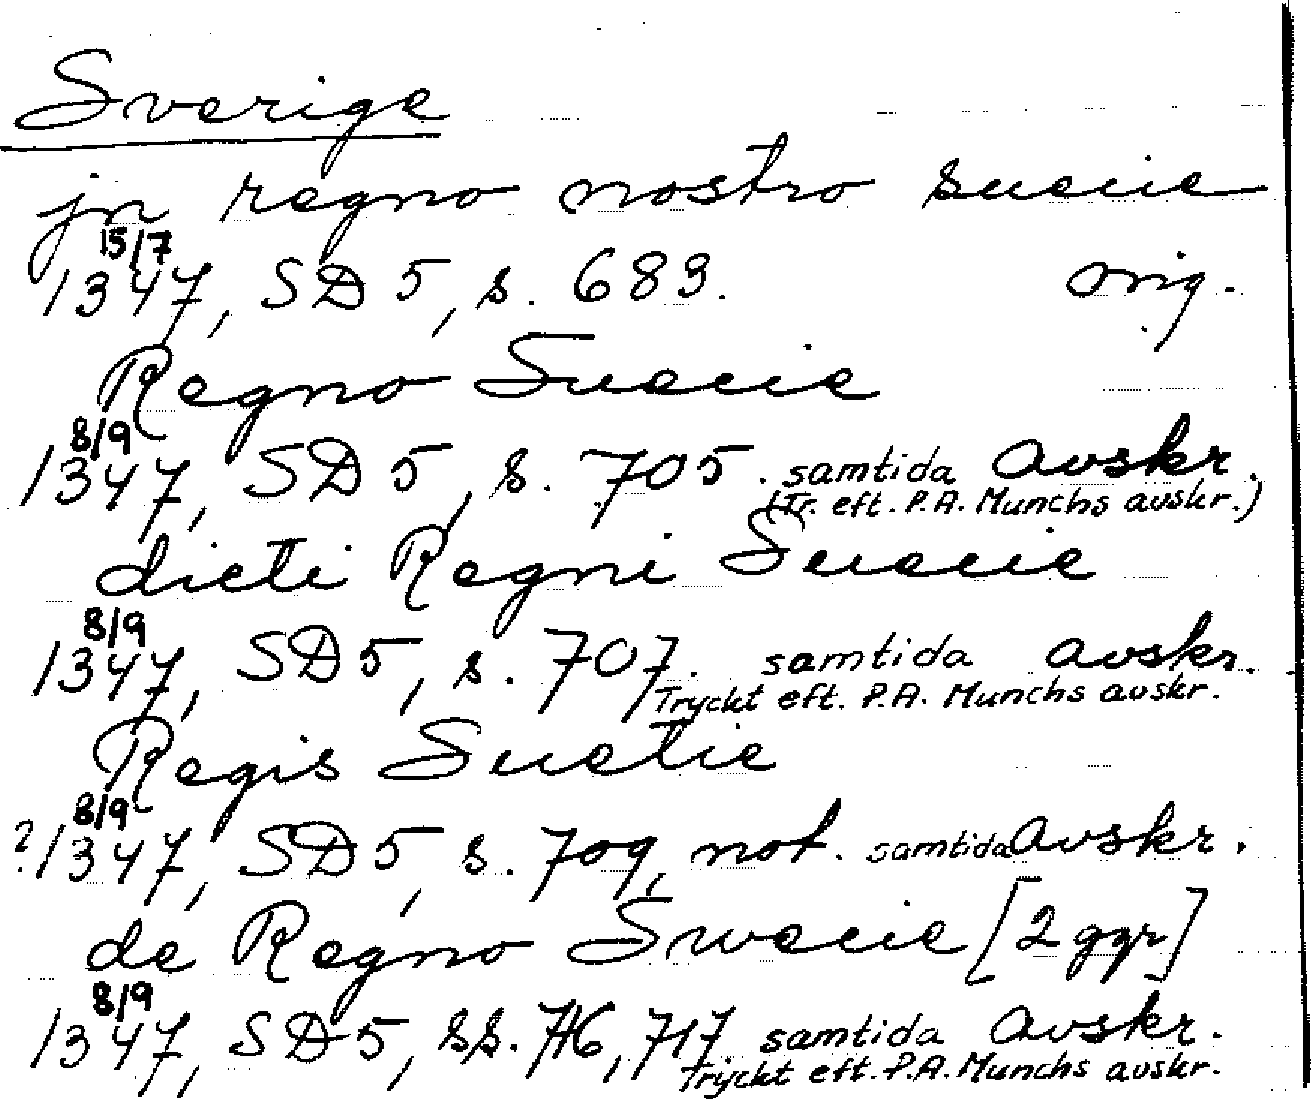 Sverige
jn regno nostro suecie
15/7
1347, SD 5, s. 683. orig.
Regno Suecie
8/9
1347, SD 5, s. 705. samtida avskr.
(Tr. eft. P.A. Munchs avskr.)
dicti Regni Suecie
8/9
1347, SD 5, s. 707. samtida avskr.
Tryckt eft. P.A. Munchs avskr.
Regis Suetie
8/9
?1347, SD 5, s. 709, not. samtida avskr.
de Regno Swecie [2 ggr]
8/9
1347, SD 5, ss. 716, 717 samtida avskr.
Tryckt eft. P.A. Munchs avskr.